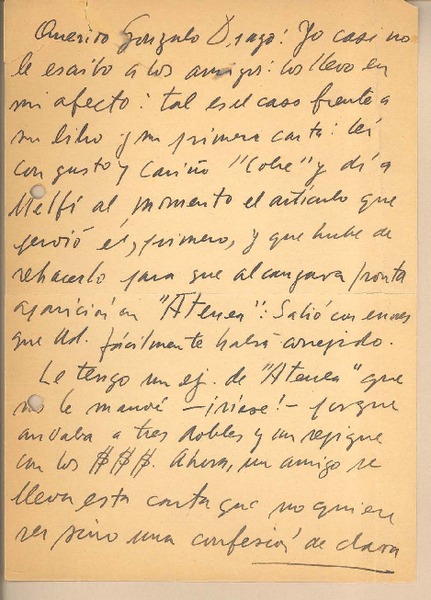 Querido Gonzalo Drago: Yo casi no
le escribo a los amigos: los llevo en
mi afecto: tal es el caso frente a
su libro y su primera carta: leí
con gusto y cariño "Cobre" y dí a
Melfi al momento el artículo que
perdió él, primero, y que hube de
rehacerlo para que alcanzara pronta
aparición en "Atenea": Salió con errores
que Ud. fácilmente habrá corregido.
Le tengo un ej. de "Atenea" que
no le mandé —¡ríase!— porque
andaba a tres dobles y un repique
con los $$$. Ahora, un amigo se
lleva esta carta que no quiere
ser sino una confesión de clara